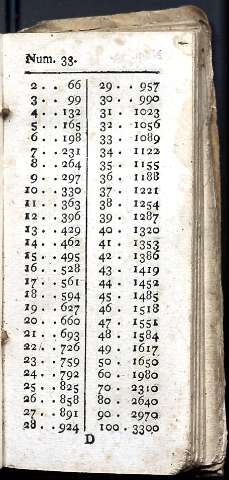 Num. 33.
2 . . 66
3 . . 99
4 . . 132
5 . . 165
6 . . 198
7 . . 231
8 . . 264
9 . . 297
10 . . 330
11 . . 363
12 . . 396
13 . . 429
14 . . 462
15 . . 495
16 . . 528
17 . . 561
18 . . 594
19 . . 627
20 . . 660
21 . . 693
22 . . 726
23 . . 759
24 . . 792
25 . . 825
26 . . 858
27 . . 891
28 . . 924
29 . . 957
30 . . 990
31 . 1023
32 . 1056
33 . 1089
34 . 1122
35 . 1155
36 . 1188
37 . 1221
38 . 1254
39 . 1287
40 . 1320
41 . 1353
42 . 1386
43 . 1419
44 . 1452
45 . 1485
46 . 1518
47 . 1551
48 . 1584
49 . 1617
50 . 1650
60 . 1980
70 . 2310
80 . 2640
90 . 2970
100 . 3300
D